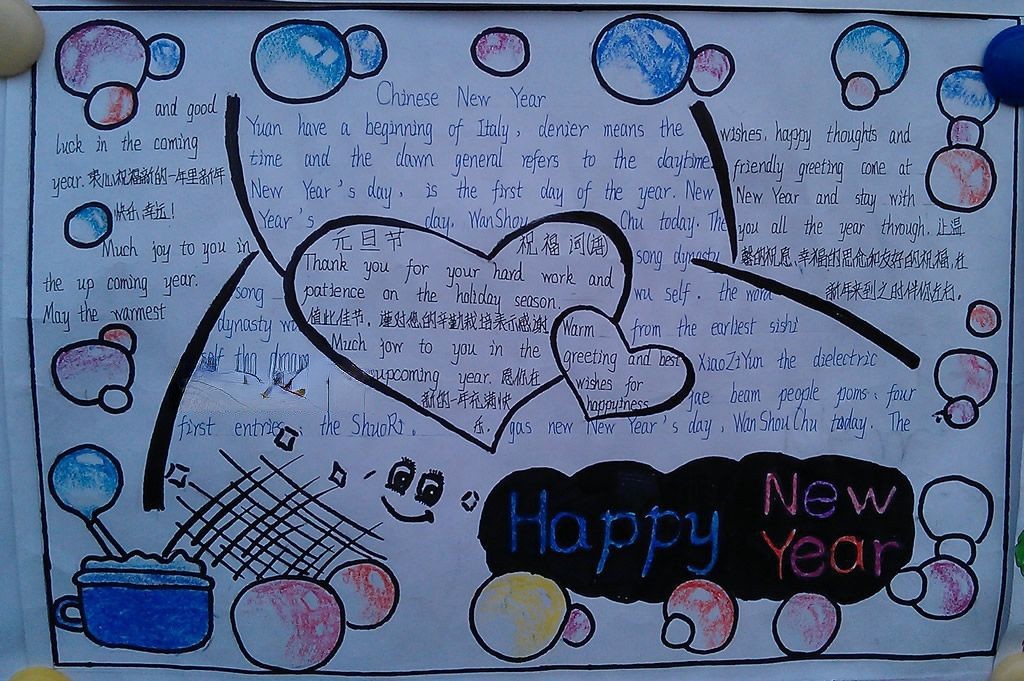 Chinese New Year
and good
luck in the coming
year. 衷心祝福新的一年里新年
快乐,幸运!
Much joy to you in
the up coming year.
May the warmest
Yuan have a beginning of Italy, denier means the
time and the dawn general refers to the daytime.
New Year's day, is the first day of the year. New
Year's day, WanShou Chu today. The
song dynasty
song wu self. the word
dynasty wu from the earliest sishi
XiaoZiYun the dielectric
jae beam people poms: four
first entries: the ShuoRi. gas new New Year's day, WanShouChu today. The
wishes, happy thoughts and
friendly greeting come at
New Year and stay with
you all the year through. 让温
馨的祝愿、幸福的思念和友好的祝福,在
新年来到之时伴你左右。
元旦节 祝福词(语)
Thank you for your hard work and
patience on the holiday season.
值此佳节,谨对您的辛勤栽培表示感谢
Much jow to you in the
upcoming year. 愿你在
新的一年充满快
乐.
Warm
greeting and best
wishes for
happyiness
Happy New
Year